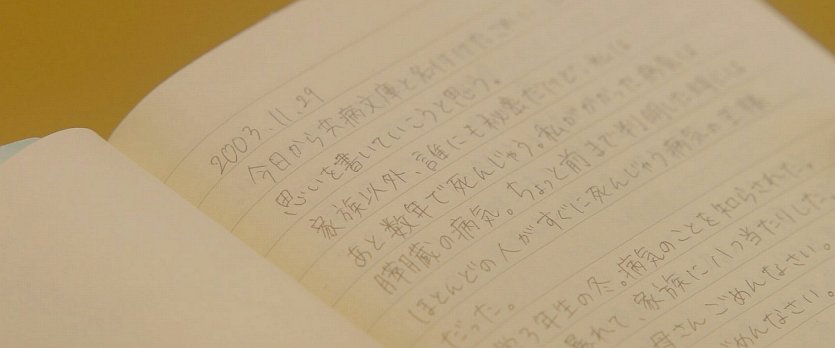 2003.11.29
今日から共病文庫と名付けたこれに
思いを書いていこうと思う。
家族以外、誰にも秘密だけど、私は
あと数年で死んじゃう。私がかかった病気は
膵臓の病気。ちょっと前まで判明した時には
ほとんどの人がすぐに死んじゃう病気の王様
だった。
3年生の冬。病気のことを知らされた。
暴れて、家族に八つ当たりした。
母さんごめんなさい。
ごめんなさい。